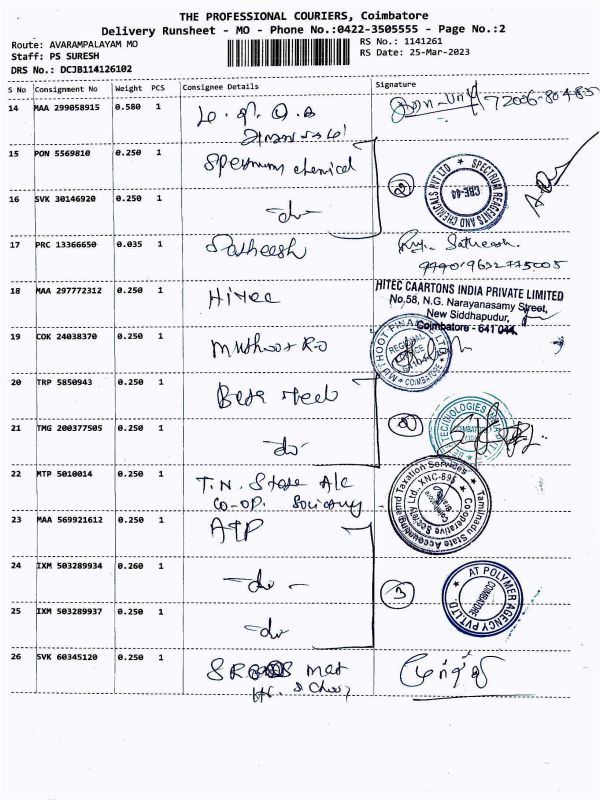 THE PROFESSIONAL COURIERS, Coimbatore
Delivery Runsheet - MO - Phone No.:0422-3505555 - Page No.:2
Route: AVARAMPALAYAM MO
RS No.: 1141261
Staff: PS SURESH
RS Date: 25-Mar-2023
DRS No.: DCJB114126102
S No Consignment No Weight PCS Consignee Details Signature
14 MAA 299058915 0.580 1
72006-80485
15 PON 5569810 0.250 1 Spectrum chemical
SPECTRUM REAGENTS AND CHEMICALS PVT LTD
CBE-44
2
16 SVK 30146920 0.250 1 -do-
17 PRC 13366650 0.035 1 Satheesh Satheesh
18 MAA 297772312 0.250 1 Hitec
HITEC CAARTONS INDIA PRIVATE LIMITED
No.58, N.G. Narayanasamy Street,
New Siddhapudur,
Coimbatore - 641 044.
19 COK 24038370 0.250 1 Muthoot RO
REGIONAL OFFICE
COIMBATORE
20 TRP 5850943 0.250 1
21 TMG 200377505 0.250 1 -do-
2
22 MTP 5010014 0.250 1 T.N. State A/c
CO-OP. Society
Tamilnadu State Accounting and Taxation Services Co-operative Society Ltd., XNC-695
23 MAA 569921612 0.250 1 ATP
24 IXM 503289934 0.260 1 -do-
3
AT POLYMER AGENCY PVT LTD
COIMBATORE
25 IXM 503289937 0.250 1 -do-
26 SVK 60345120 0.250 1 Mat
Hr. S